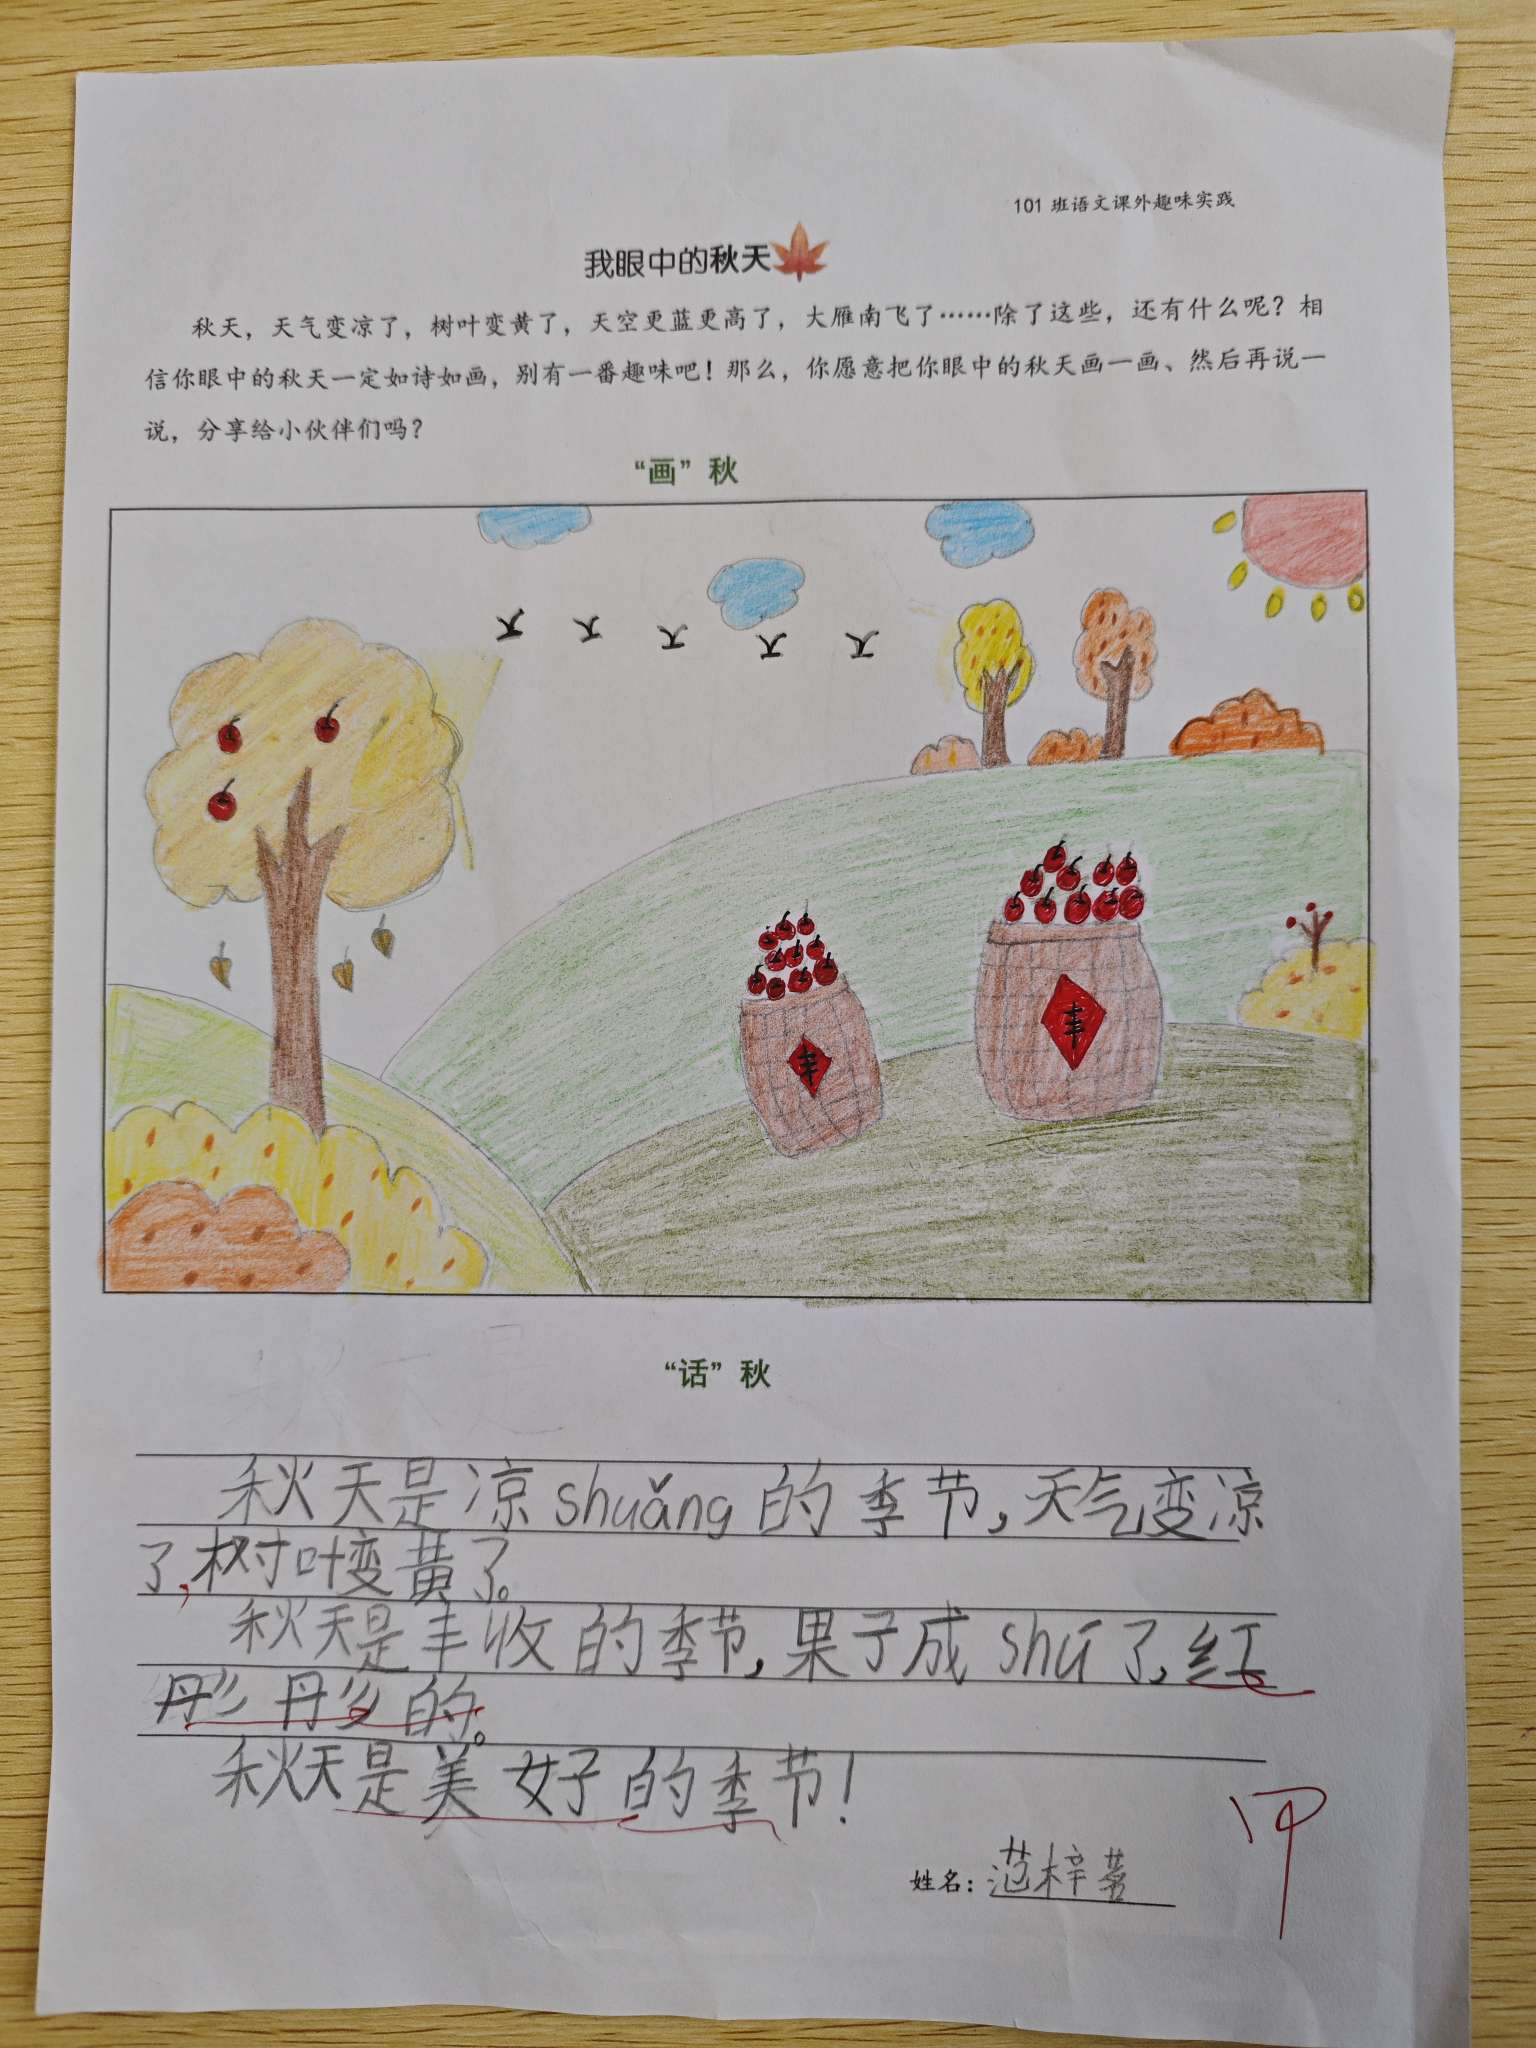 101 班语文课外趣味实践
我眼中的秋天
秋天，天气变凉了，树叶变黄了，天空更蓝更高了，大雁南飞了……除了这些，还有什么呢？相
信你眼中的秋天一定如诗如画，别有一番趣味吧！那么，你愿意把你眼中的秋天画一画、然后再说一
说，分享给小伙伴们吗？
“画”秋
丰
丰
“话”秋
秋天是凉shuǎng的季节，天气变凉
了，树叶变黄了。
秋天是丰收的季节，果子成shú了，红
彤彤的。
秋天是美好的季节！
甲
姓名：范梓